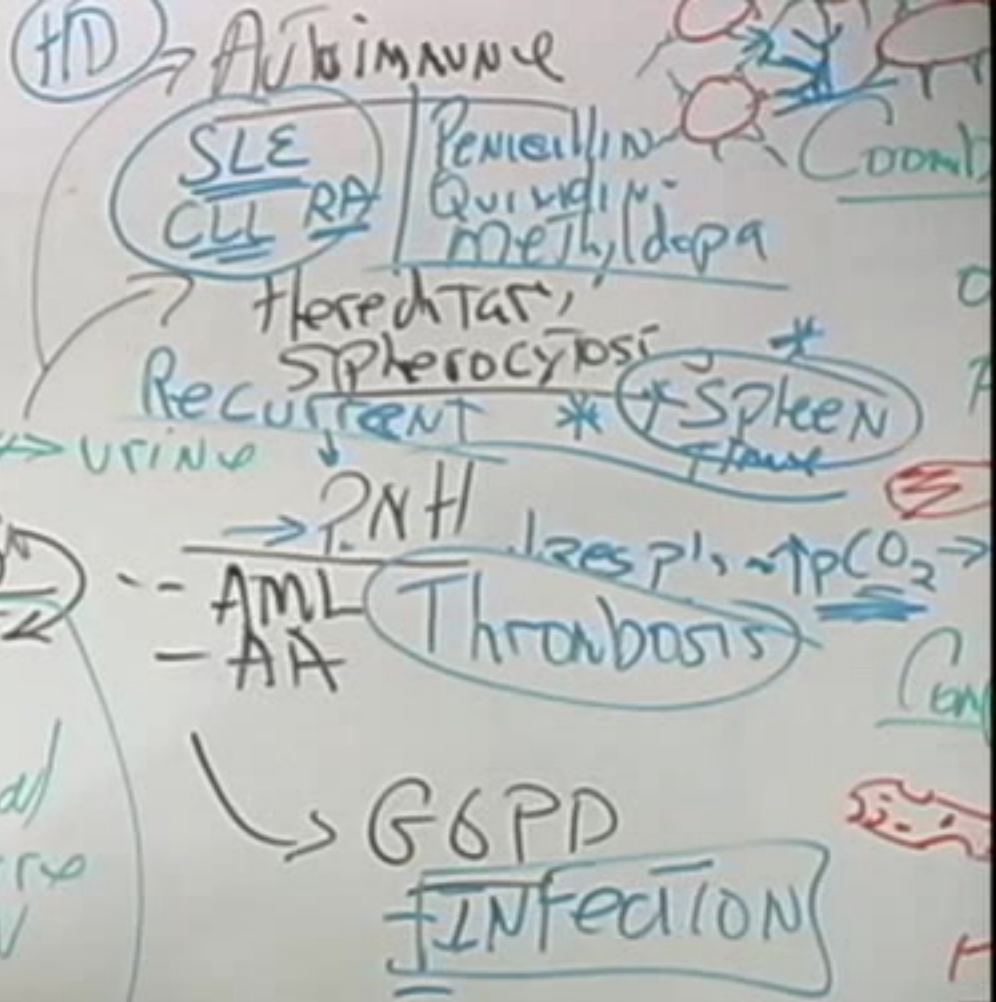 HD → Autoimmune
SLE Penicillin
CLL RA Quinidin
Methyldopa
Coomb
Hereditary
Spherocytosi
Recurrent * ↑ Spleen *
↔ urine
→ PNH
pCO₂ →
-- AML Thrombosis
- AA
Con
→ G6PD
INfection